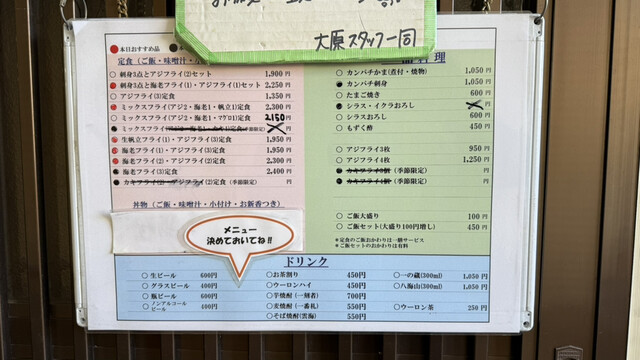 大原スタッフ一同
●本日おすすめ品
定食(ご飯・味噌汁・小
刺身3点とアジフライ(2)セット 1,900円
刺身3点と海老フライ(1)・アジフライ(1)セット 2,250円
アジフライ(3)定食 1,350円
ミックスフライ(アジ2・海老1・帆立1)定食 2,300円
ミックスフライ(アジ2・海老1・マグロ1)定食 2150円
生帆立フライ(1)・アジフライ(1)定食 1,950円
海老フライ(1)・アジフライ(3)定食 1,950円
海老フライ(2)・アジフライ(2)定食 2,300円
海老フライ(3)定食 2,400円
カキフライ(2)・アジフライ(2)定食 (季節限定) 円
丼物(ご飯・味噌汁・小付け・お新香つき)
料理
カンパチかま(煮付・焼物) 1,050円
カンパチ刺身 1,050円
たまご焼き 600円
シラス・イクラおろし 円
シラスおろし 600円
もずく酢 450円
アジフライ3枚 950円
アジフライ4枚 1,250円
カキフライ3個 (季節限定)
カキフライ4個 (季節限定)
ご飯大盛り 100円
ご飯セット(大盛り100円増し) 450円
*定食のご飯おかわりは一膳サービス
*ご飯セットのおかわりは有料
メニュー
決めておいてね!!
ドリンク
生ビール 600円
グラスビール 400円
瓶ビール 600円
ノンアルコール
ビール 400円
お茶割り 450円
ウーロンハイ 450円
芋焼酎(一刻者) 700円
麦焼酎(一番札) 550円
そば焼酎(雲海) 550円
一の蔵(300ml) 1,050円
八海山(300ml) 1,050円
ウーロン茶 250円